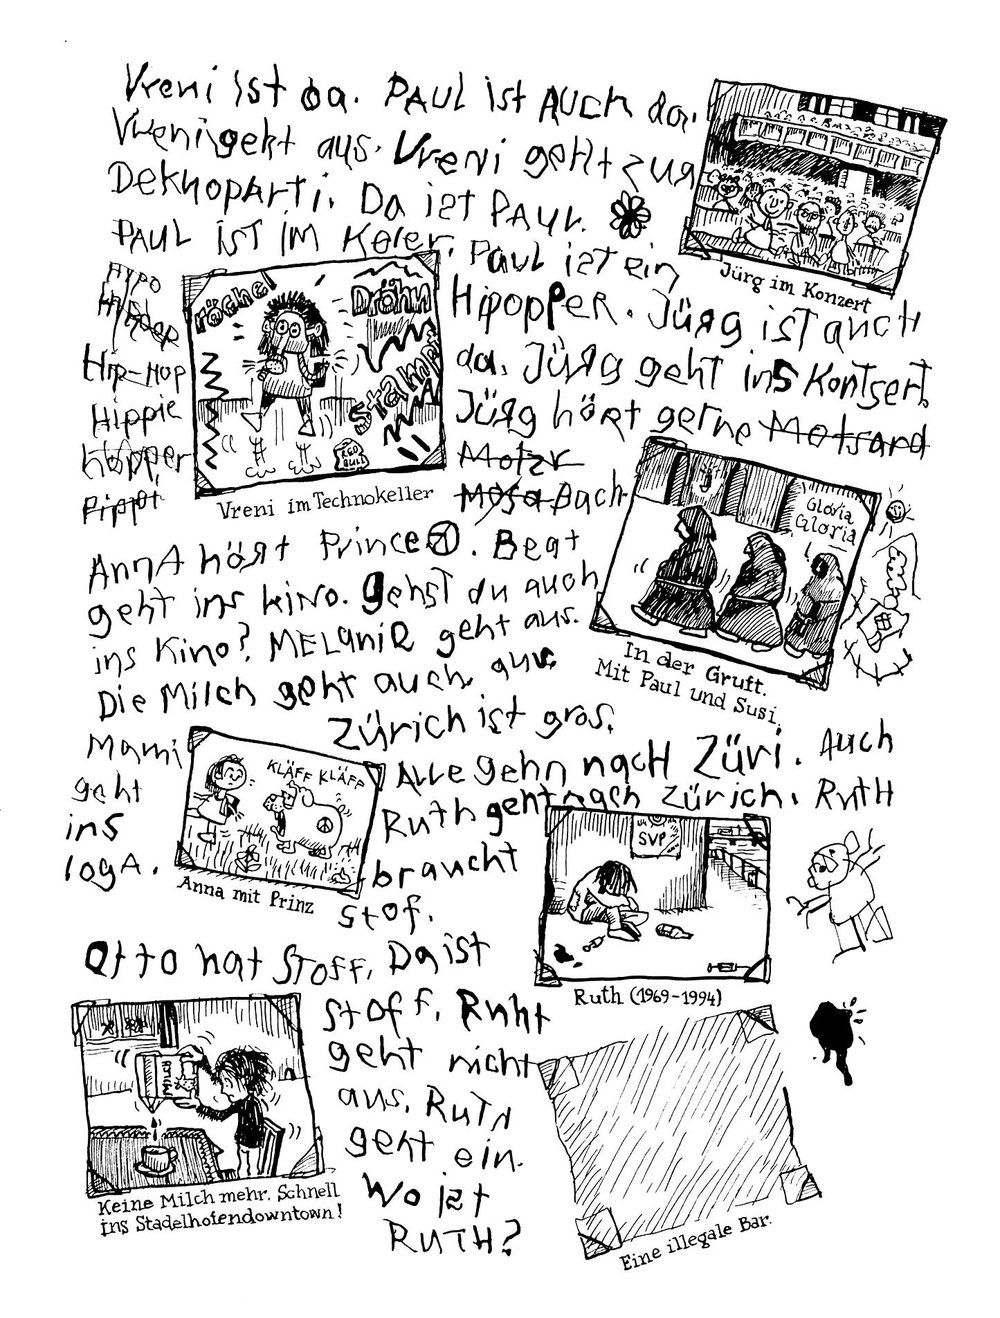 Vreni ist da. PAUL ist AUCH da.
Vrenigeht aus. Vreni geht zur
Deknoparti. Da ist PAUL.
PAUL IST IM Keler. Paul ist ein
Hipopper. Jürg ist auch
da. Jürg geht ins Kontsert.
Jürg hört gerne Motsard
Motzr
Mosa Bach
HYPO
Hip-Hop
Hippie
hopper
Pippot
röchel
Dröhn
Stampf
RED
BULL
Vreni im Technokeller
Jürg im Konzert
Gloria
Gloria
In der Gruft.
Mit Paul und Susi.
AnnA hört Prince. Beat
geht ins kino. gehst du auch
ins Kino? MELANIE geht aus.
Die Milch geht auch aus.
Mami
geht
ins
logA.
Zürich ist gros.
Alle gehn nacH Züri. Auch
Ruth geht nach Zürich. RuTH
braucht
stof.
KLÄFF KLÄFF
Anna mit Prinz
SVP
Ruth (1969-1994)
Otto hat STOFF. Da ist
STOFF. Ruht
geht nicht
aus. RuTh
geht ein.
Wo ist
RUTH?
MILCH
Keine Milch mehr. Schnell
ins Stadelhofendowntown!
Eine illegale Bar.